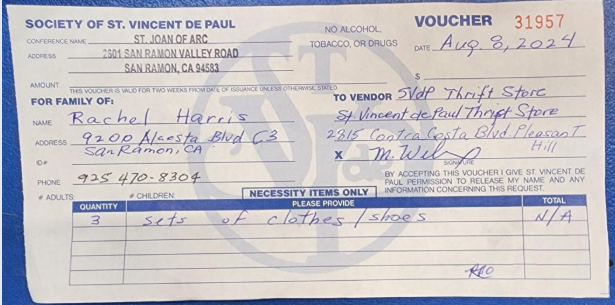 SOCIETY OF ST. VINCENT DE PAUL
NO ALCOHOL, TOBACCO, OR DRUGS
VOUCHER 31957
CONFERENCE NAME ST. JOAN OF ARC
DATE Aug. 8, 2024
ADDRESS 2601 SAN RAMON VALLEY ROAD
SAN RAMON, CA 94583
AMOUNT $
THIS VOUCHER IS VALID FOR TWO WEEKS FROM DATE OF ISSUANCE UNLESS OTHERWISE STATED
FOR FAMILY OF:
NAME Rachel Harris
ADDRESS 9200 Alcosta Blvd C3
San Ramon, CA
ID#
PHONE 925 470-8304
# ADULTS: # CHILDREN:
TO VENDOR SVdP Thrift Store
St. Vincent de Paul Thrift Store
2815 Contra Costa Blvd Pleasant
Hill
X
SIGNATURE
BY ACCEPTING THIS VOUCHER I GIVE ST. VINCENT DE
PAUL PERMISSION TO RELEASE MY NAME AND ANY
INFORMATION CONCERNING THIS REQUEST.
NECESSITY ITEMS ONLY
QUANTITY PLEASE PROVIDE TOTAL
3 sets of clothes / shoes N/A